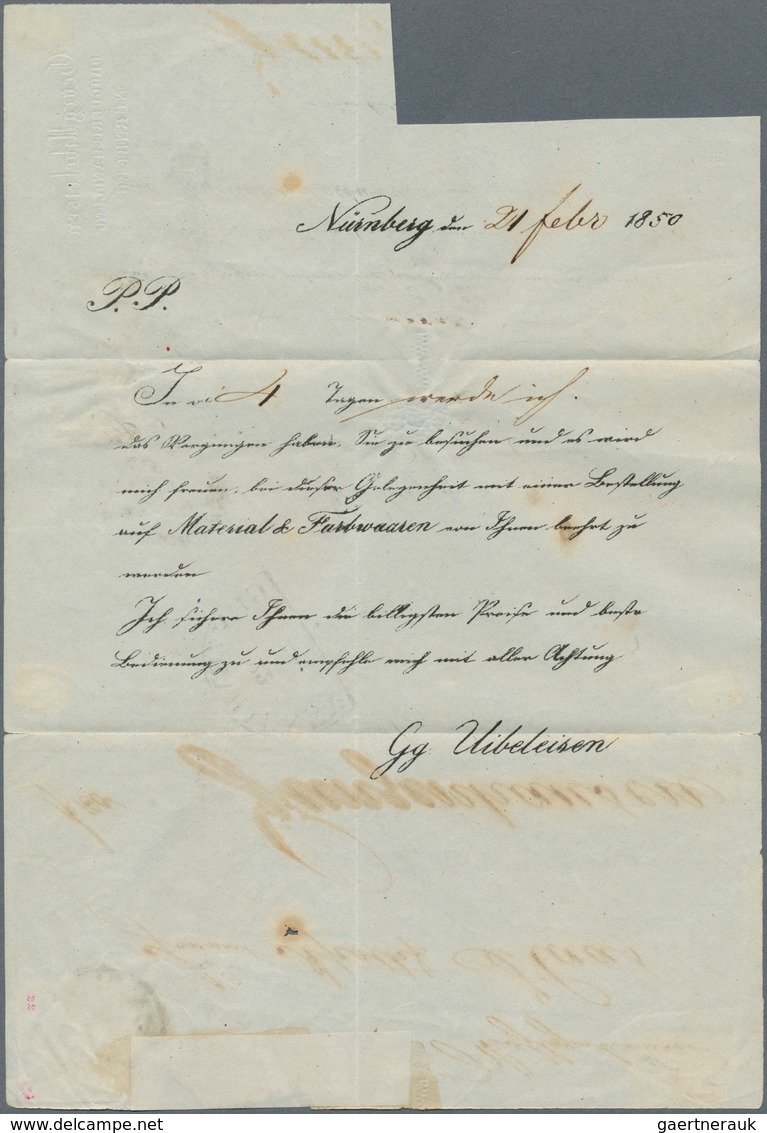 Nürnberg, den 21 febr 1850
P.P.
In 4 Tagen werde ich
das Vergnügen haben, Sie zu besuchen und es wird
mich freuen, bei dieser Gelegenheit mit einer Bestellung
auf Material & Farbwaaren von Ihnen beehrt zu
werden
Ich sichere Ihnen die billigsten Preise und beste
Bedienung zu und empfehle mich mit aller Achtung
Gg. Uibeleisen
22
gaertnerauk